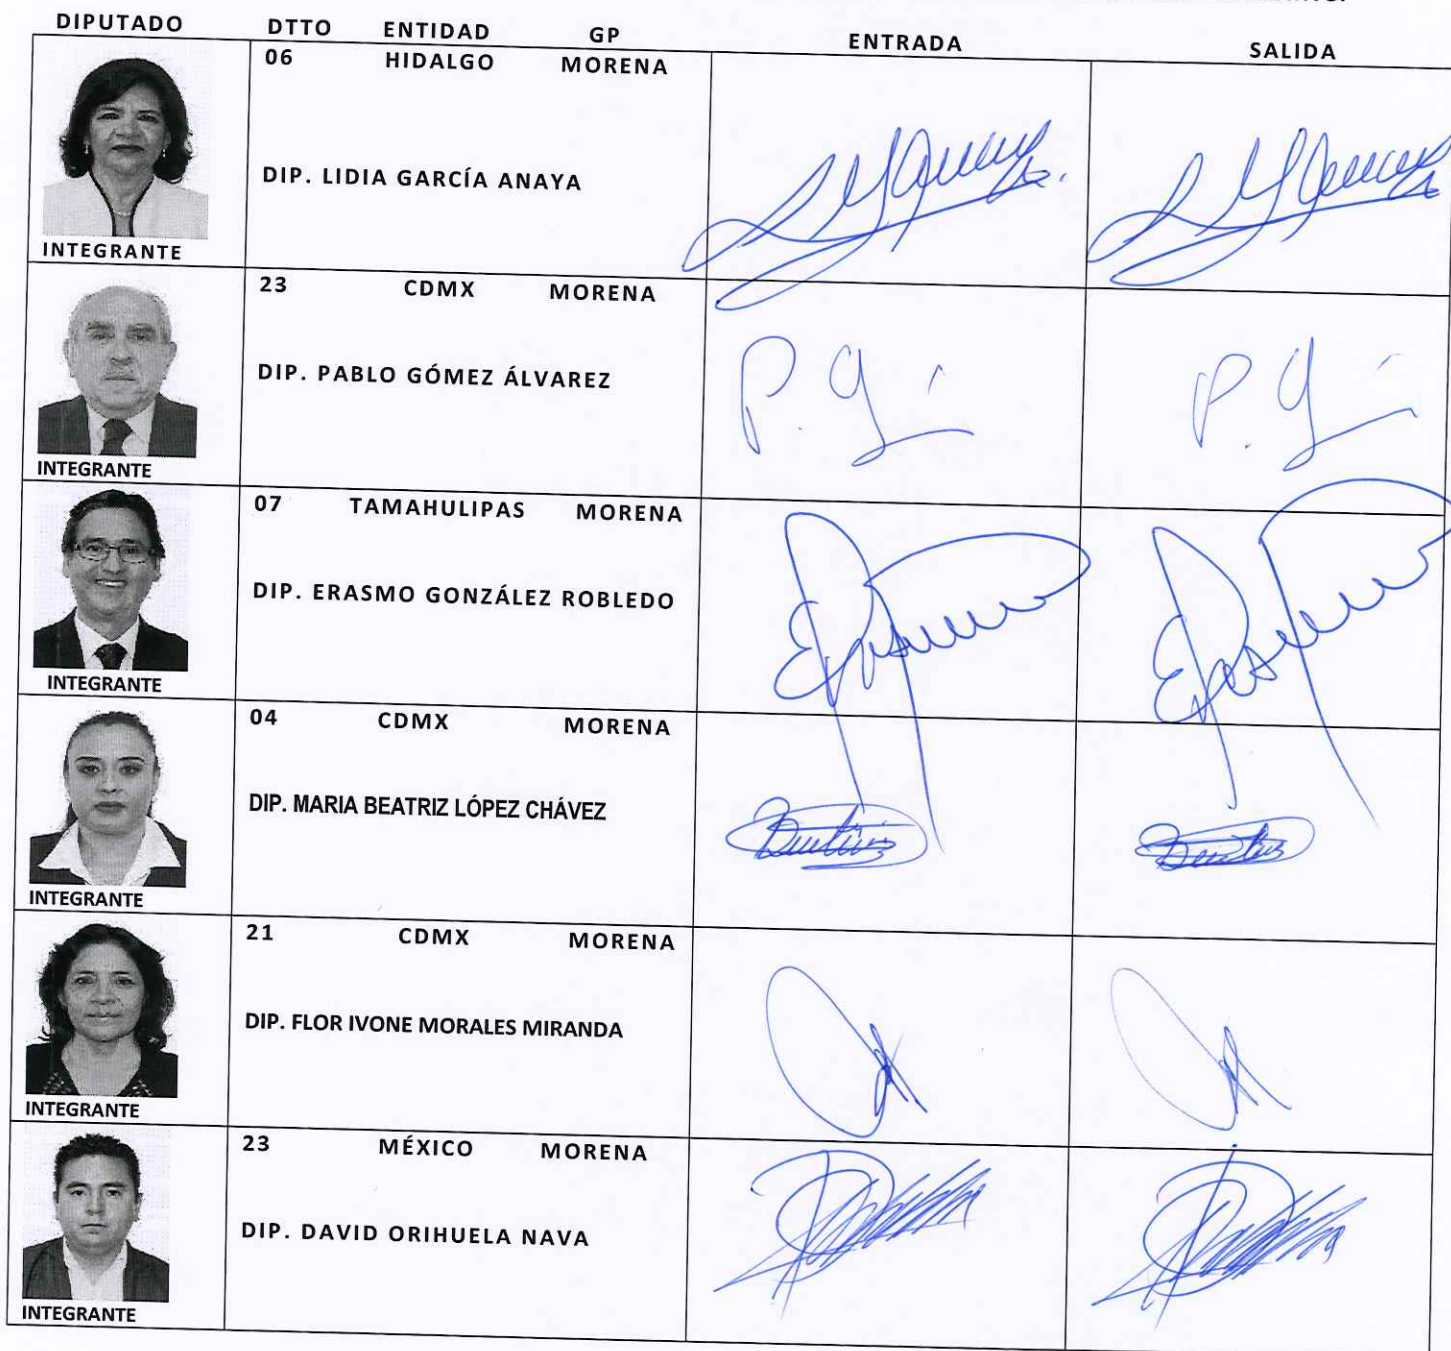 DIPUTADO DTTO ENTIDAD GP ENTRADA SALIDA
06 HIDALGO MORENA
DIP. LIDIA GARCÍA ANAYA
INTEGRANTE
23 CDMX MORENA
DIP. PABLO GÓMEZ ÁLVAREZ
P. G
P. G
INTEGRANTE
07 TAMAHULIPAS MORENA
DIP. ERASMO GONZÁLEZ ROBLEDO
INTEGRANTE
04 CDMX MORENA
DIP. MARIA BEATRIZ LÓPEZ CHÁVEZ
INTEGRANTE
21 CDMX MORENA
DIP. FLOR IVONE MORALES MIRANDA
INTEGRANTE
23 MÉXICO MORENA
DIP. DAVID ORIHUELA NAVA
INTEGRANTE